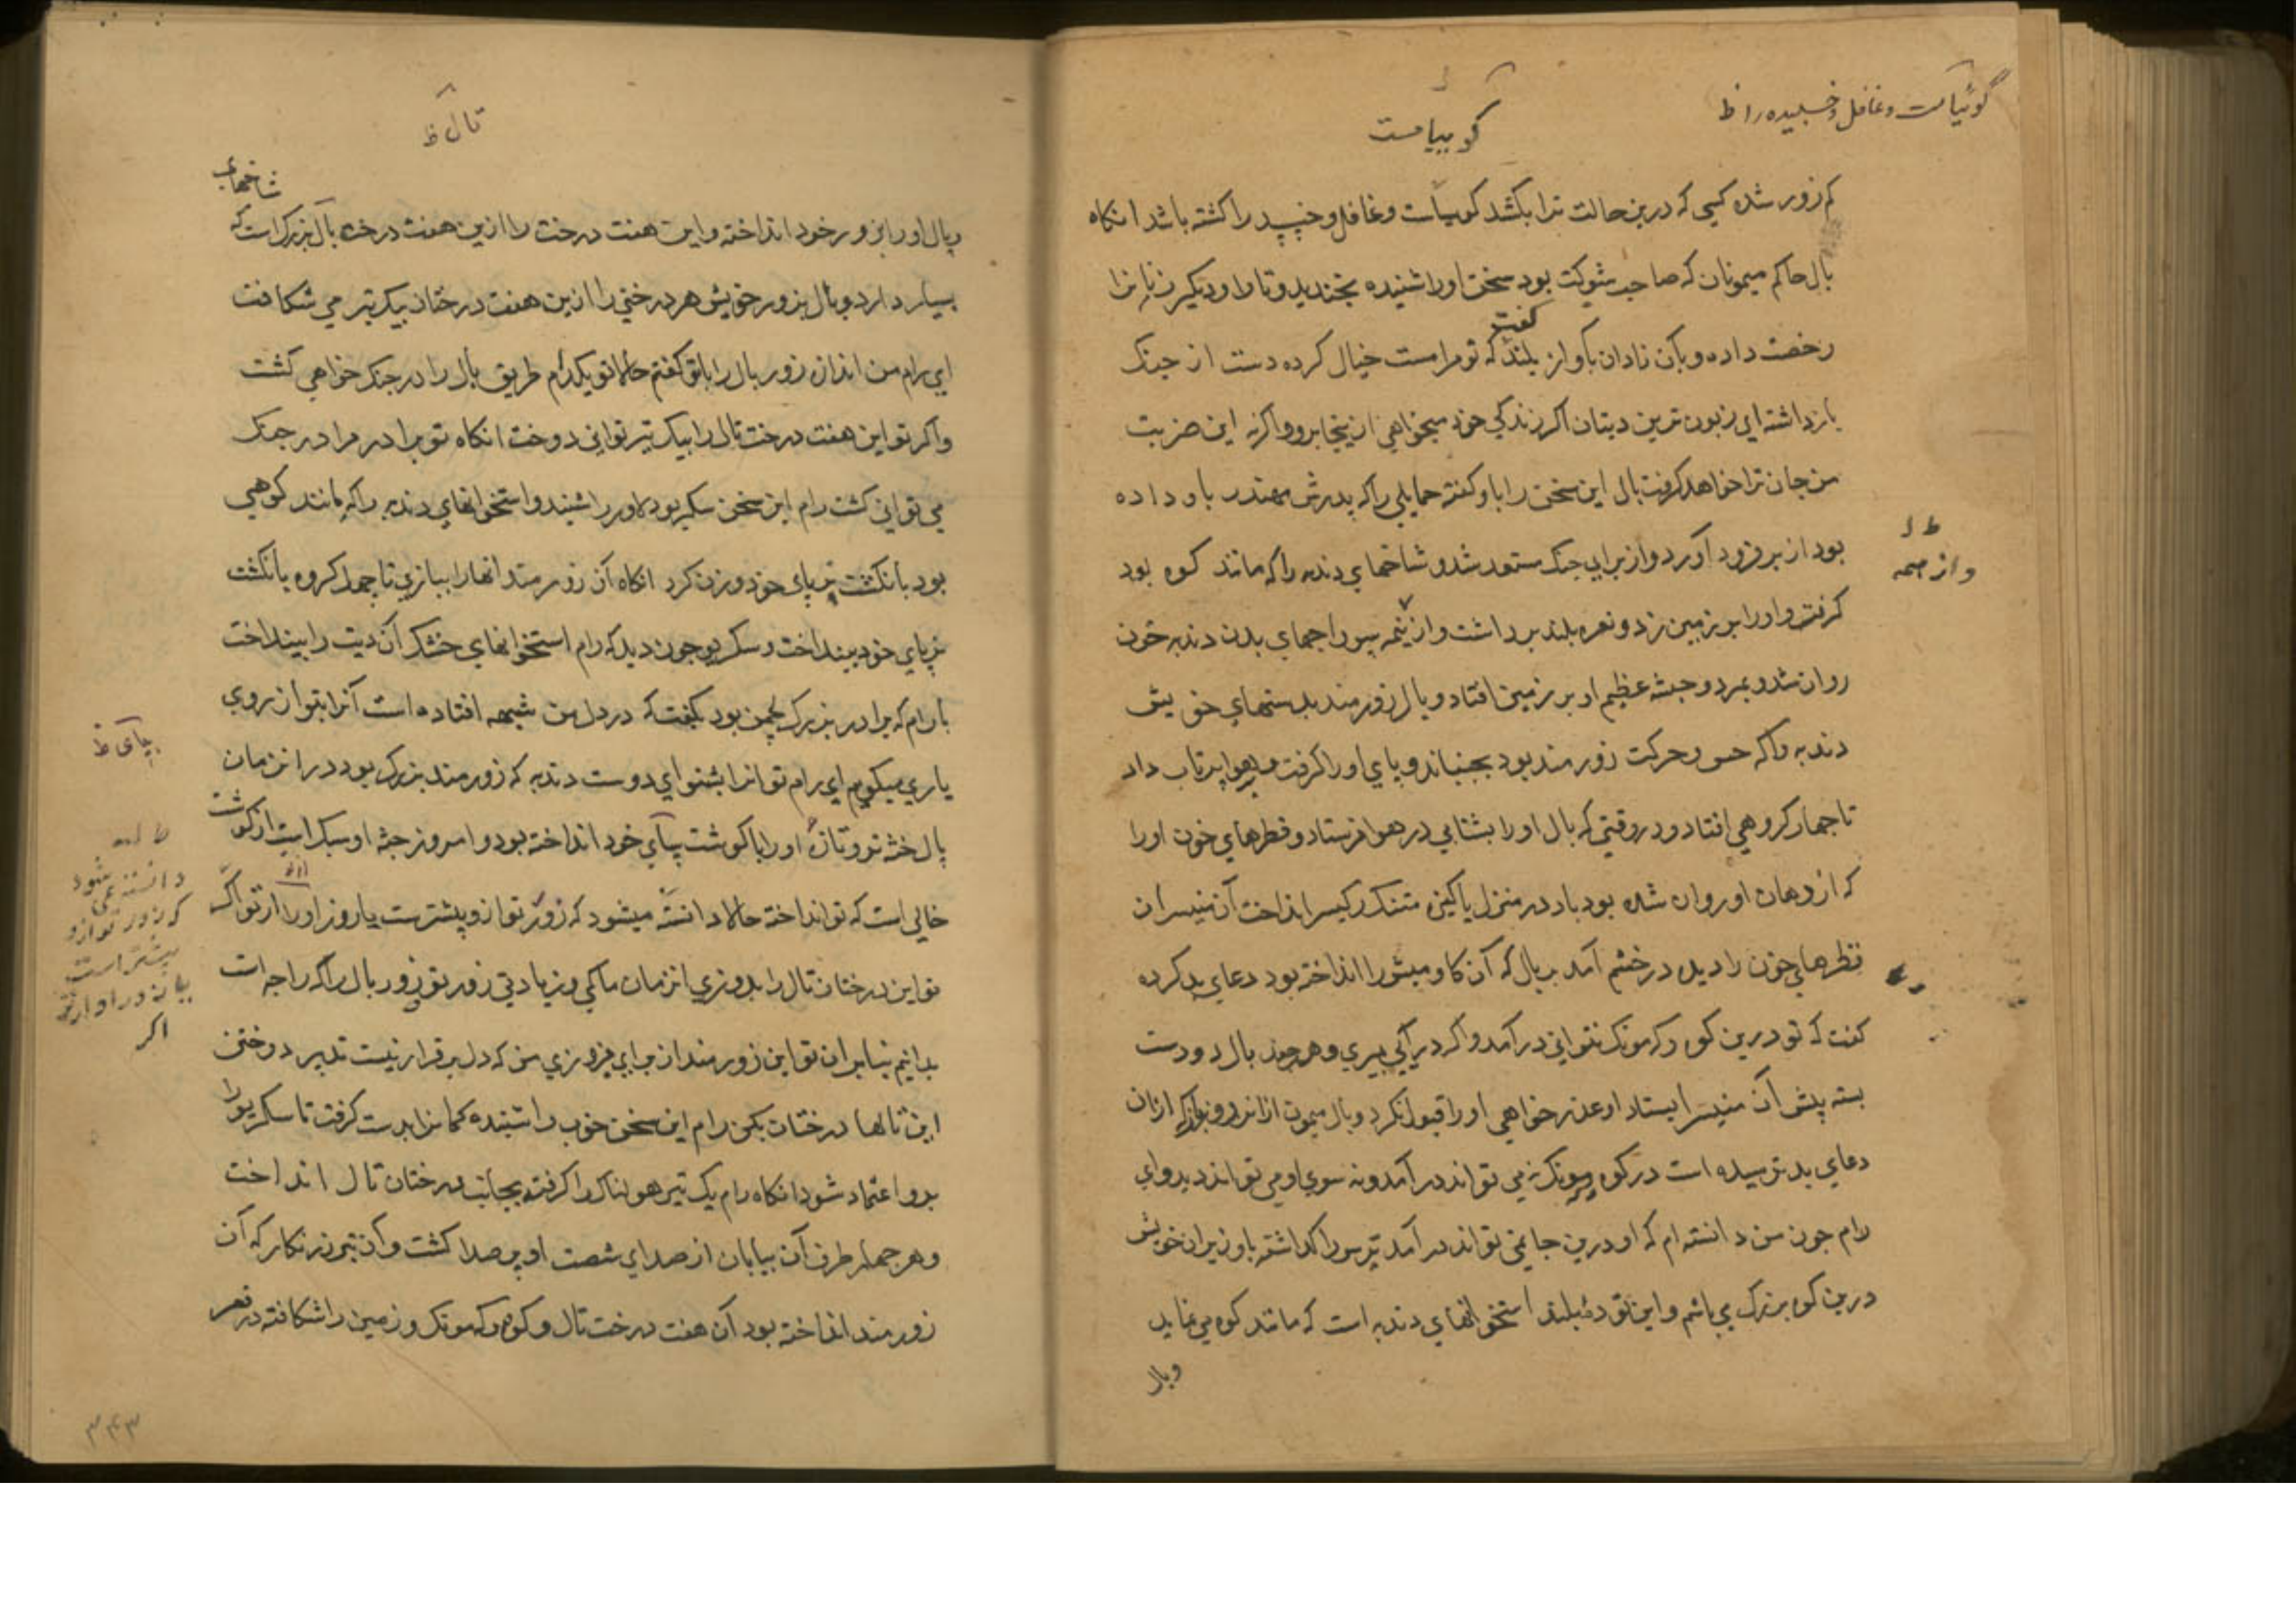 گوئیا مست و غافل و خسبیده را ظ
کو بیا مست
کم زور شده کسی که درین حالت ترا بکشد کوییا مست و غافل و خسپیده را کشته باشد انکاه
بال حاکم میمونان که صاحب شوکت بود سخن او را شنیده بخندید و تارا و دیکر زنانرا
رخصت داده و بآن نادان بآواز بلند کفت که تو مرا مست خیال کرده دست از جنک
بازداشته ای زبون ترین دیتان اکر زندکی خود میخواهی ازینجا برو واکرنه این ضربت
من جان ترا خواهد کرفت بال این سخن را باو کفته حمایلی را که پدرش مهندر باو داده
بود از بر فرود آورد و از برای جنک مستعد شد و شاخهای دندبه را که مانند کوه بود
و از همه
کرفت و او را بر زمین زد و نعره بلند برداشت و از همه سوراخهای بدن دندبه خون
روان شد و بمرد و جثه عظیم او بر زمین افتاد و بال زورمند بدستهای خویش
دندبه را که حس و حرکت زورمند بود بجنباند و پای او را کرفت و بهوا پرتاب داد
تا چهار کروهی افتاد و در وقتی که بال او را بشتابی در هوا فرستاد و قطرهای خون او را
که از دهان او روان شده بود باد در منزل پاکیزه متنک رکیسر انداخت آن منیسر آن
قطرهای خون را دیده در خشم آمد بر بال که آن کاومیش را انداخته بود دعای بد کرده
کفت که تو درین کوه رکه مونک نتوانی درآمد و اکر درآیی بمیری و هر چند بال دو دست
بسته پیش آن منیسر ایستاد او عذر خواهی او را قبول نکرد و بال میمون ازان روز باز که ازان
دعای بد ترسیده است در کوه رکه مونک نمی تواند درآمد و نه سوی او می تواند دید و ای
رام چون من دانسته ام که او درین جا نمی تواند درآمد ترس را کذاشته با وزیران خویش
درین کوه بزرک می باشم و این توده بلند استخوانهای دندبه است که مانند کوه می نماید
و بال
تال ظ
شاخهای
بال او را بزور خود انداخته و این هفت درخت را ازین هفت درخت بال بزرک است که
بسیار دارد و بال بزور خویش هر درختی را ازین هفت درختان بیک تیر می شکافت
ای رام من اندازه زور بال را باتو کفتم حالا تو بکدام طریق بال را در جنک خواهی کشت
واکر تو این هفت درخت تال را بیک تیر توانی دوخت انکاه تو برادر مرا در جنک
می توانی کشت رام این سخن سکریو دلاور را شنید و استخوانهای دندبه را که مانند کوهی
بود بانکشت پای خود وزن کرد انکاه آن زورمند انها را ببازی تا چهل کروه بانکشت
پای خود بینداخت و سکریو چون دید که رام استخوانهای خشک آن دیت را بینداخت
بارام که برادر بزرک لچمن بود بکفت که در دل من شبهه افتاده است آنرا بتو از روی
یاری میکویم ای رام تو انرا بشنو ای دوست دندبه که زورمند بزرک بود در ان زمان
بپای ظ
بال جثه تر و تازه او را با کوشت بپای خود انداخته بود و امروز جثه او سبک است از کوشت
خالی است که تو انداخته حالا دانسته میشود که زور تو ازو پیشترست یا زور او از تو اکر
دانسته نمی شود
که زور تو ازو
بیشتر است
یا زور او از تو
اکر
تو این درختان تال را بدوزی انزمان ما کمی و زیادتی زور تو و زور بال را که راجه است
بدانیم بنابران تو این زورمند از برای فیروزی من که دل برقرار نیست تدبیر دوختن
این تالها درختان بکن رام این سخن خوب را شنیده کمانرا بدست کرفت تا سکریو را
برو اعتماد شود انکاه رام یک تیر هولناک را کرفته بجانب درختان تال انداخت
و هر چهار طرف آن بیابان از صدای شصت او پر صدا کشت و آن تیر زرنکار که آن
زورمند انداخته بود آن هفت درخت تال و کوه رکه مونک و زمین را شکافته در قعر
۳۴۳